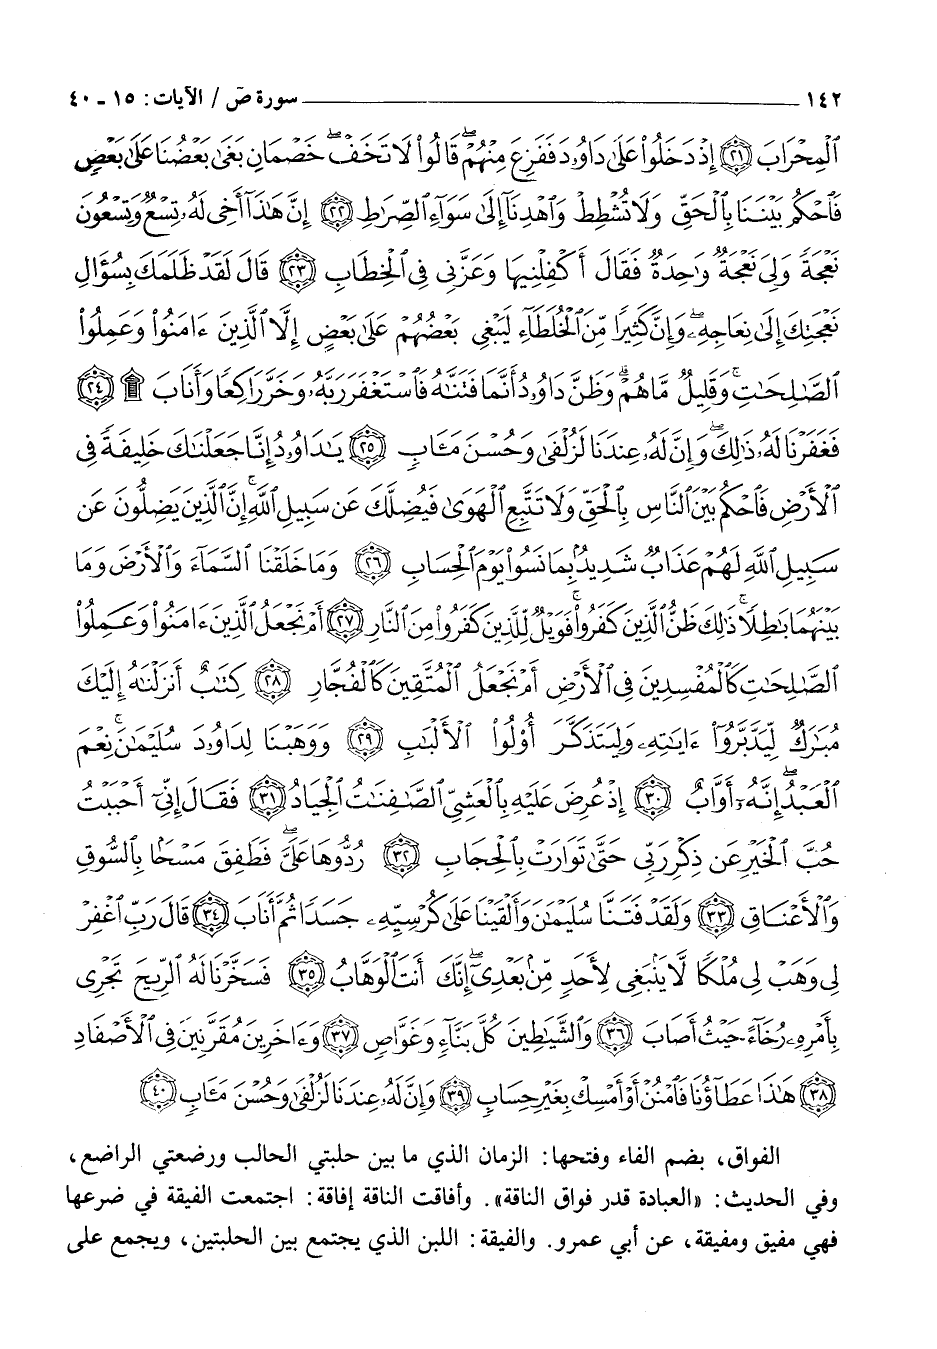 ١٤٢ ــــــــ سورة صٓ / الآيات: ١٥ ـ ٤٠
ٱلْمِحْرَابَ ﴿٢١﴾ إِذْ دَخَلُوا۟ عَلَىٰ دَاوُۥدَ فَفَزِعَ مِنْهُمْ ۖ قَالُوا۟ لَا تَخَفْ ۖ خَصْمَانِ بَغَىٰ بَعْضُنَا عَلَىٰ بَعْضٍ
فَٱحْكُم بَيْنَنَا بِٱلْحَقِّ وَلَا تُشْطِطْ وَٱهْدِنَآ إِلَىٰ سَوَآءِ ٱلصِّرَٰطِ ﴿٢٢﴾ إِنَّ هَٰذَآ أَخِى لَهُۥ تِسْعٌ وَتِسْعُونَ
نَعْجَةً وَلِىَ نَعْجَةٌ وَٰحِدَةٌ فَقَالَ أَكْفِلْنِيهَا وَعَزَّنِى فِى ٱلْخِطَابِ ﴿٢٣﴾ قَالَ لَقَدْ ظَلَمَكَ بِسُؤَالِ
نَعْجَتِكَ إِلَىٰ نِعَاجِهِۦ ۖ وَإِنَّ كَثِيرًا مِّنَ ٱلْخُلَطَآءِ لَيَبْغِى بَعْضُهُمْ عَلَىٰ بَعْضٍ إِلَّا ٱلَّذِينَ ءَامَنُوا۟ وَعَمِلُوا۟
ٱلصَّٰلِحَٰتِ وَقَلِيلٌ مَّا هُمْ ۗ وَظَنَّ دَاوُۥدُ أَنَّمَا فَتَنَّٰهُ فَٱسْتَغْفَرَ رَبَّهُۥ وَخَرَّ رَاكِعًا وَأَنَابَ ۩ ﴿٢٤﴾
فَغَفَرْنَا لَهُۥ ذَٰلِكَ ۖ وَإِنَّ لَهُۥ عِندَنَا لَزُلْفَىٰ وَحُسْنَ مَـَٔابٍ ﴿٢٥﴾ يَٰدَاوُۥدُ إِنَّا جَعَلْنَٰكَ خَلِيفَةً فِى
ٱلْأَرْضِ فَٱحْكُم بَيْنَ ٱلنَّاسِ بِٱلْحَقِّ وَلَا تَتَّبِعِ ٱلْهَوَىٰ فَيُضِلَّكَ عَن سَبِيلِ ٱللَّهِ ۚ إِنَّ ٱلَّذِينَ يَضِلُّونَ عَن
سَبِيلِ ٱللَّهِ لَهُمْ عَذَابٌ شَدِيدٌۢ بِمَا نَسُوا۟ يَوْمَ ٱلْحِسَابِ ﴿٢٦﴾ وَمَا خَلَقْنَا ٱلسَّمَآءَ وَٱلْأَرْضَ وَمَا
بَيْنَهُمَا بَٰطِلًا ۚ ذَٰلِكَ ظَنُّ ٱلَّذِينَ كَفَرُوا۟ ۚ فَوَيْلٌ لِّلَّذِينَ كَفَرُوا۟ مِنَ ٱلنَّارِ ﴿٢٧﴾ أَمْ نَجْعَلُ ٱلَّذِينَ ءَامَنُوا۟ وَعَمِلُوا۟
ٱلصَّٰلِحَٰتِ كَٱلْمُفْسِدِينَ فِى ٱلْأَرْضِ أَمْ نَجْعَلُ ٱلْمُتَّقِينَ كَٱلْفُجَّارِ ﴿٢٨﴾ كِتَٰبٌ أَنزَلْنَٰهُ إِلَيْكَ
مُبَٰرَكٌ لِّيَدَّبَّرُوٓا۟ ءَايَٰتِهِۦ وَلِيَتَذَكَّرَ أُو۟لُوا۟ ٱلْأَلْبَٰبِ ﴿٢٩﴾ وَوَهَبْنَا لِدَاوُۥدَ سُلَيْمَٰنَ ۚ نِعْمَ
ٱلْعَبْدُ ۖ إِنَّهُۥٓ أَوَّابٌ ﴿٣٠﴾ إِذْ عُرِضَ عَلَيْهِ بِٱلْعَشِىِّ ٱلصَّٰفِنَٰتُ ٱلْجِيَادُ ﴿٣١﴾ فَقَالَ إِنِّىٓ أَحْبَبْتُ
حُبَّ ٱلْخَيْرِ عَن ذِكْرِ رَبِّى حَتَّىٰ تَوَارَتْ بِٱلْحِجَابِ ﴿٣٢﴾ رُدُّوهَا عَلَىَّ ۖ فَطَفِقَ مَسْحًۢا بِٱلسُّوقِ
وَٱلْأَعْنَاقِ ﴿٣٣﴾ وَلَقَدْ فَتَنَّا سُلَيْمَٰنَ وَأَلْقَيْنَا عَلَىٰ كُرْسِيِّهِۦ جَسَدًا ثُمَّ أَنَابَ ﴿٣٤﴾ قَالَ رَبِّ ٱغْفِرْ
لِى وَهَبْ لِى مُلْكًا لَّا يَنۢبَغِى لِأَحَدٍ مِّنۢ بَعْدِىٓ ۖ إِنَّكَ أَنتَ ٱلْوَهَّابُ ﴿٣٥﴾ فَسَخَّرْنَا لَهُ ٱلرِّيحَ تَجْرِى
بِأَمْرِهِۦ رُخَآءً حَيْثُ أَصَابَ ﴿٣٦﴾ وَٱلشَّيَٰطِينَ كُلَّ بَنَّآءٍ وَغَوَّاصٍ ﴿٣٧﴾ وَءَاخَرِينَ مُقَرَّنِينَ فِى ٱلْأَصْفَادِ
﴿٣٨﴾ هَٰذَا عَطَآؤُنَا فَٱمْنُنْ أَوْ أَمْسِكْ بِغَيْرِ حِسَابٍ ﴿٣٩﴾ وَإِنَّ لَهُۥ عِندَنَا لَزُلْفَىٰ وَحُسْنَ مَـَٔابٍ ﴿٤٠﴾
الفواق، بضم الفاء وفتحها: الزمان الذي ما بين حلبتي الحالب ورضعتي الراضع،
وفي الحديث: «العبادة قدر فواق الناقة». وأفاقت الناقة إفاقة: اجتمعت الفيقة في ضرعها
فهي مفيق ومفيقة، عن أبي عمرو. والفيقة: اللبن الذي يجتمع بين الحلبتين، ويجمع على